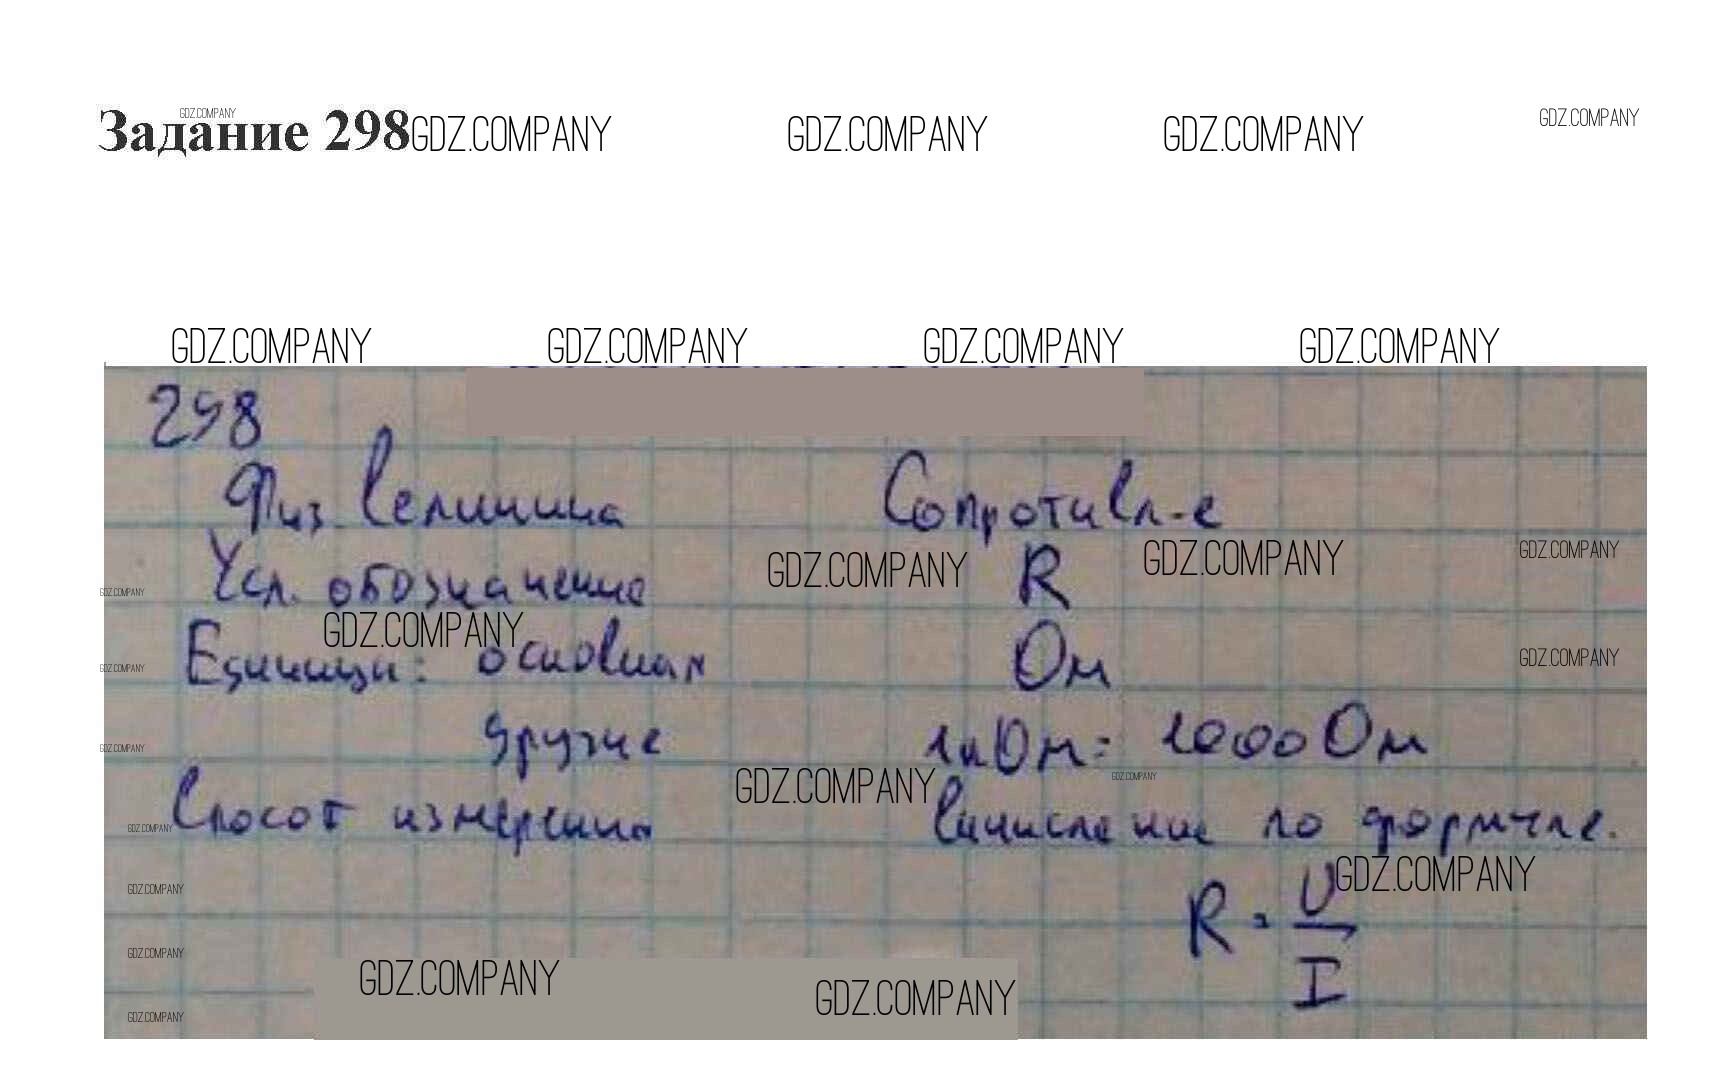 GDZ.COMPANY
Задание 298 GDZ.COMPANY GDZ.COMPANY GDZ.COMPANY GDZ.COMPANY
GDZ.COMPANY GDZ.COMPANY GDZ.COMPANY GDZ.COMPANY
298
Физ. величина Сопротивл-е
Усл. обозначение R
GDZ.COMPANY GDZ.COMPANY GDZ.COMPANY
GDZ.COMPANY
GDZ.COMPANY
Единицы: основная Ом
GDZ.COMPANY GDZ.COMPANY
другие 1кОм = 1000 Ом
GDZ.COMPANY
GDZ.COMPANY GDZ.COMPANY
Способ измерения Вычисление по формуле.
GDZ.COMPANY
GDZ.COMPANY GDZ.COMPANY
R = U
I
GDZ.COMPANY
GDZ.COMPANY GDZ.COMPANY
GDZ.COMPANY